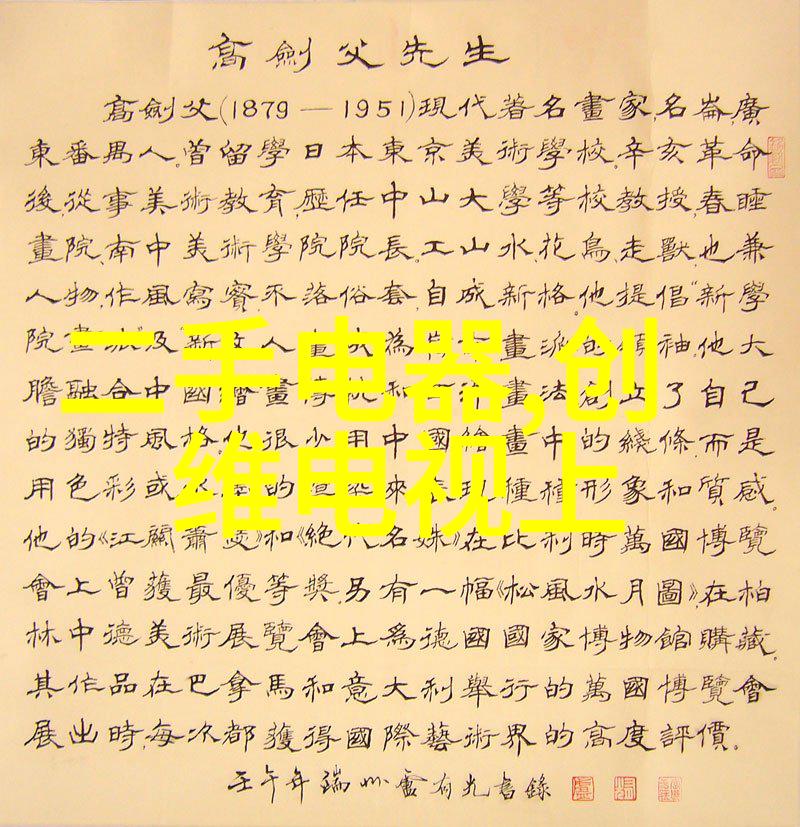 高劍父先生
高劍父(1879—1951)現代著名畫家,名崙,廣
東番禺人。曾留學日本東京美術學校。辛亥革命
後,從事美術教育,歷任中山大學等校教授,春睡
畫院,南中美術學院院長。工山水,花鳥,走獸,也兼
人物,作風寫實,不落俗套,自成新格。他提倡"新學
院畫派"及"新文人畫 為 畫派的領袖。他大
膽融合中國繪畫傳統和 畫法,創立了自己
的獨特風格。他很少用中國繪畫中的綫條,而是
用色彩或水 的渲染來表現種種形象和質感。
他的《江關蕭 》和《絕代名姝》在比利時萬國博覽
會上曾獲最優等獎。另有一幅《松風水月圖》,在柏
林中德美術展覽會上為德國國家博物館購藏。
其作品在巴拿馬和意大利舉行的萬國博覽會
展出時,每次都獲得國際藝術界的高度評價。
壬午年端州 有光書錄
二手电器,创
维电视上